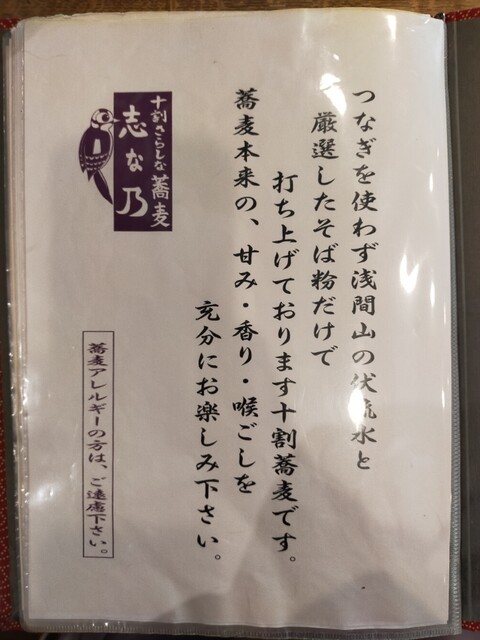 つなぎを使わず浅間山の伏流水と
厳選したそば粉だけで
打ち上げております十割蕎麦です。
蕎麦本来の、甘み・香り・喉ごしを
充分にお楽しみ下さい。
十割さらしな蕎麦
志な乃
蕎麦アレルギーの方は、ご遠慮下さい。